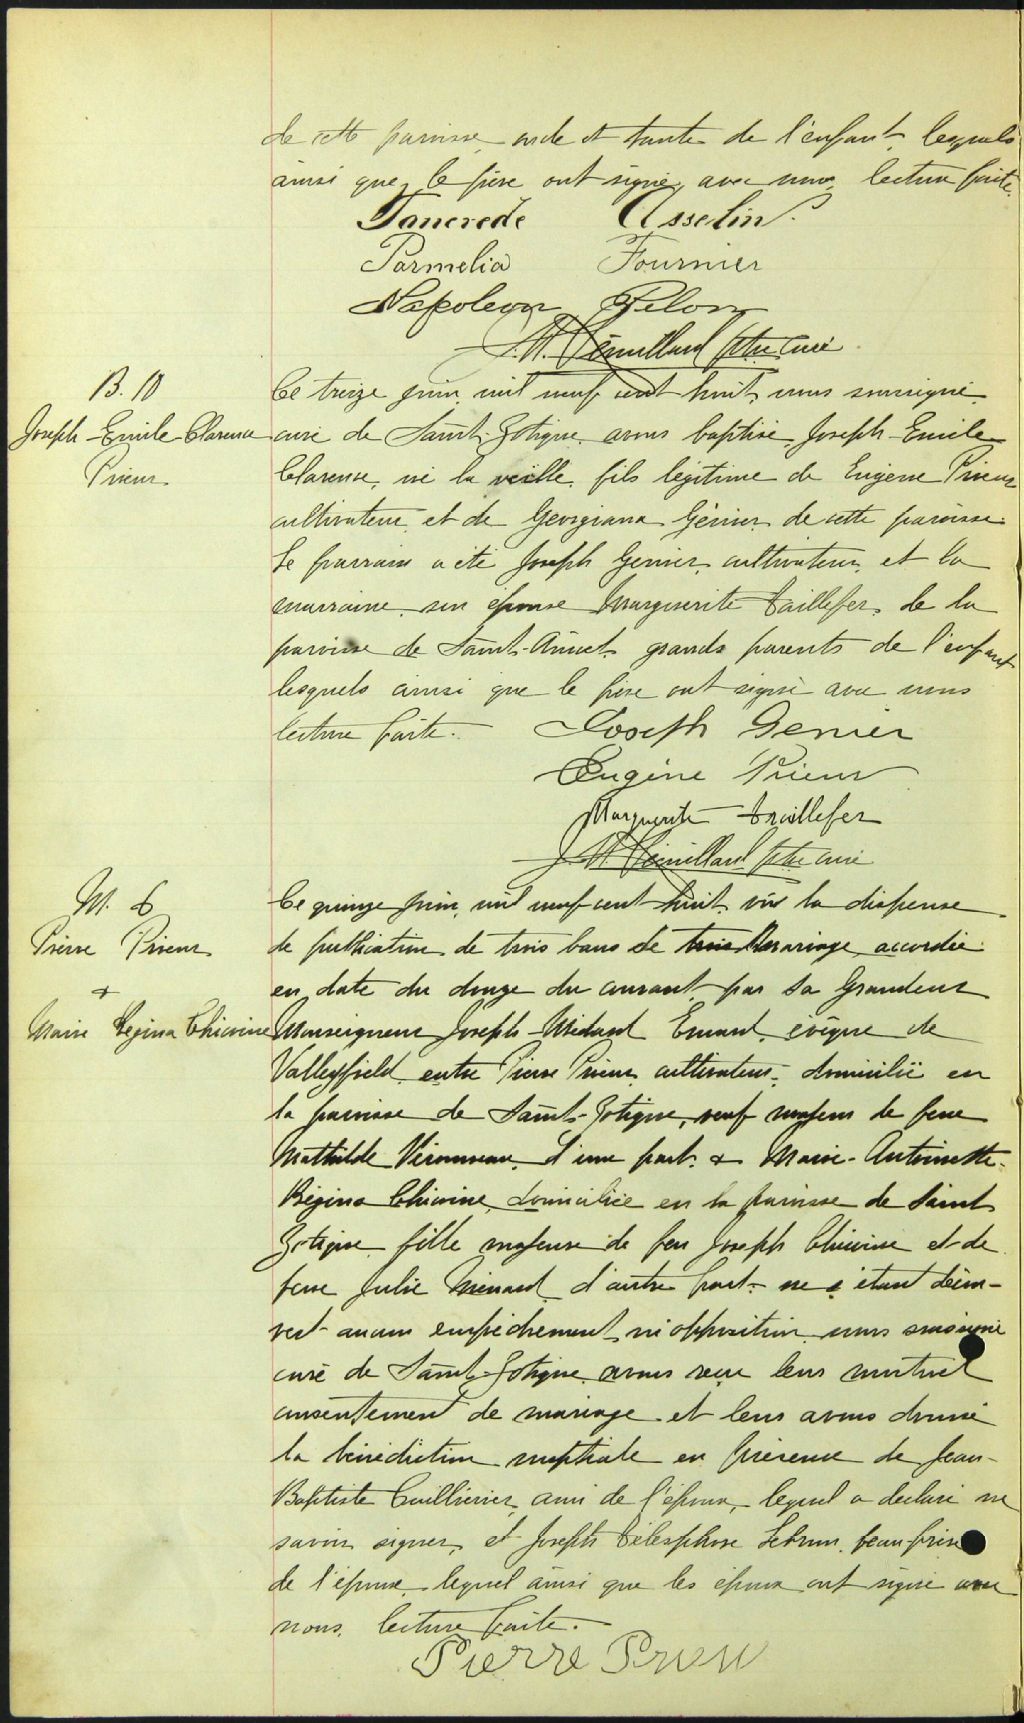 de cette paroisse, oncle et tante de l'enfant, lesquels
ainsi que le père ont signé avec nous, lecture faite.
Tancrede Asselin
Parmelia Fournier
Napoleon Pilon
ptre curé
B. 10
Joseph-Emile-Clarence
Prieur
Ce treize juin, mil neuf cent huit, nous soussigné,
curé de Saint-Zotique, avons baptisé, Joseph-Emile
Clarence, né la veille, fils légitime de Eugène Prieur
cultivateur et de Georgiana Génier, de cette paroisse.
Le parrain a été Joseph Genier, cultivateur, et la
marraine, son épouse Marguerite Taillefer, de la
paroisse de Saint-Anicet, grands parents de l'enfant
lesquels ainsi que le père ont signé avec nous
lecture faite.
Joseph Genier
Eugène Prieur
Marguerite Traillefer
ptre curé
M. 6
Pierre Prieur
+
Marie Régina Chicoine
Ce quinze juin, mil neuf cent huit, vu la dispense
de publication de trois bans de mariage accordée
en date du douze du courant par Sa Grandeur
Monseigneur Joseph-Médard Emard, évêque de
Valleyfield, entre Pierre Prieur, cultivateur, domicilié en
la paroisse de Saint-Zotique, veuf majeur de feue
Mathilde Véronneau, d'une part, & Marie-Antoinette-
Régina Chicoine, domiciliée en la paroisse de Saint
Zotique fille majeure de feu Joseph Chicoine et de
feue Julie Ménard, d'autre part, ne s'étant décou-
vert aucun empêchement ni opposition, nous soussigné
curé de Saint-Zotique avons reçu leur mutuel
consentement de mariage et leur avons donné
la bénédiction nuptiale en présence de Jean-
Baptiste Cuillierier, ami de l'époux, lequel a déclaré ne
savoir signer, et Joseph Télesphore Lebrun, beau-frère
de l'épouse, lequel ainsi que les époux ont signé avec
nous, lecture faite.
Pierre Prieur